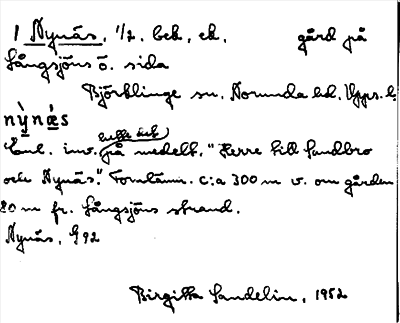 1 Nynäs, 1/2. bek, ek, gård på
Långsjöns ö. sida
Björklinge sn. Norunda hd. Upps. l.
nỳnæ̀s
Enl. inv. på medelt. "Herre till Sandbro
och Nynäs". Fornlämn. c:a 300 m v. om gården
20 m fr. Långsjöns strand.
Nynäs, G 92
Birgitta Sandelin, 1952